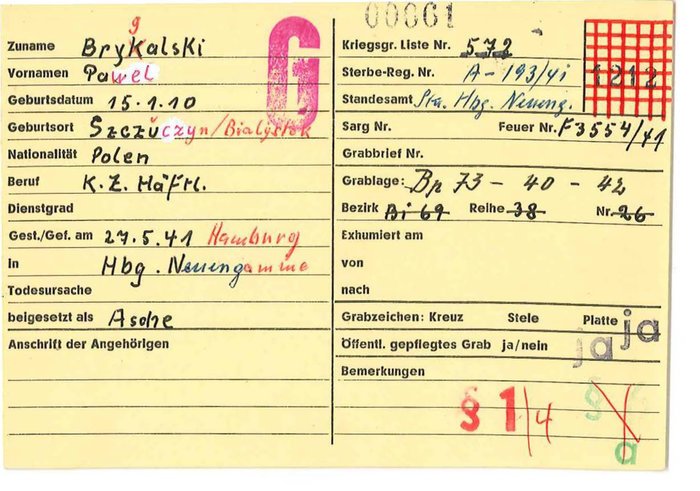 00661
g
Zuname Brykalski
Vornamen Pawel
Geburtsdatum 15.1.10
Geburtsort Szczuczyn/Bialystok
Nationalität Polen
Beruf K.Z. Häftl.
Dienstgrad
Gest./Gef. am 27.5.41 Hamburg
in Hbg. Neuengamme
Todesursache
beigesetzt als Asche
Anschrift der Angehörigen
G
Kriegsgr. Liste Nr. 572
Sterbe-Reg. Nr. A-193/41
Standesamt Sta. Hbg. Neueng.
1212
Sarg Nr. Feuer Nr. F3554/41
Grabbrief Nr.
Grablage: Bp 73 - 40 - 42
Bezirk Bi 69 Reihe 38 Nr. 26
Exhumiert am
von
nach
Grabzeichen: Kreuz Stele Platte ja
Öffentl. gepflegtes Grab ja/nein ja
Bemerkungen
§ 1/4 §
a